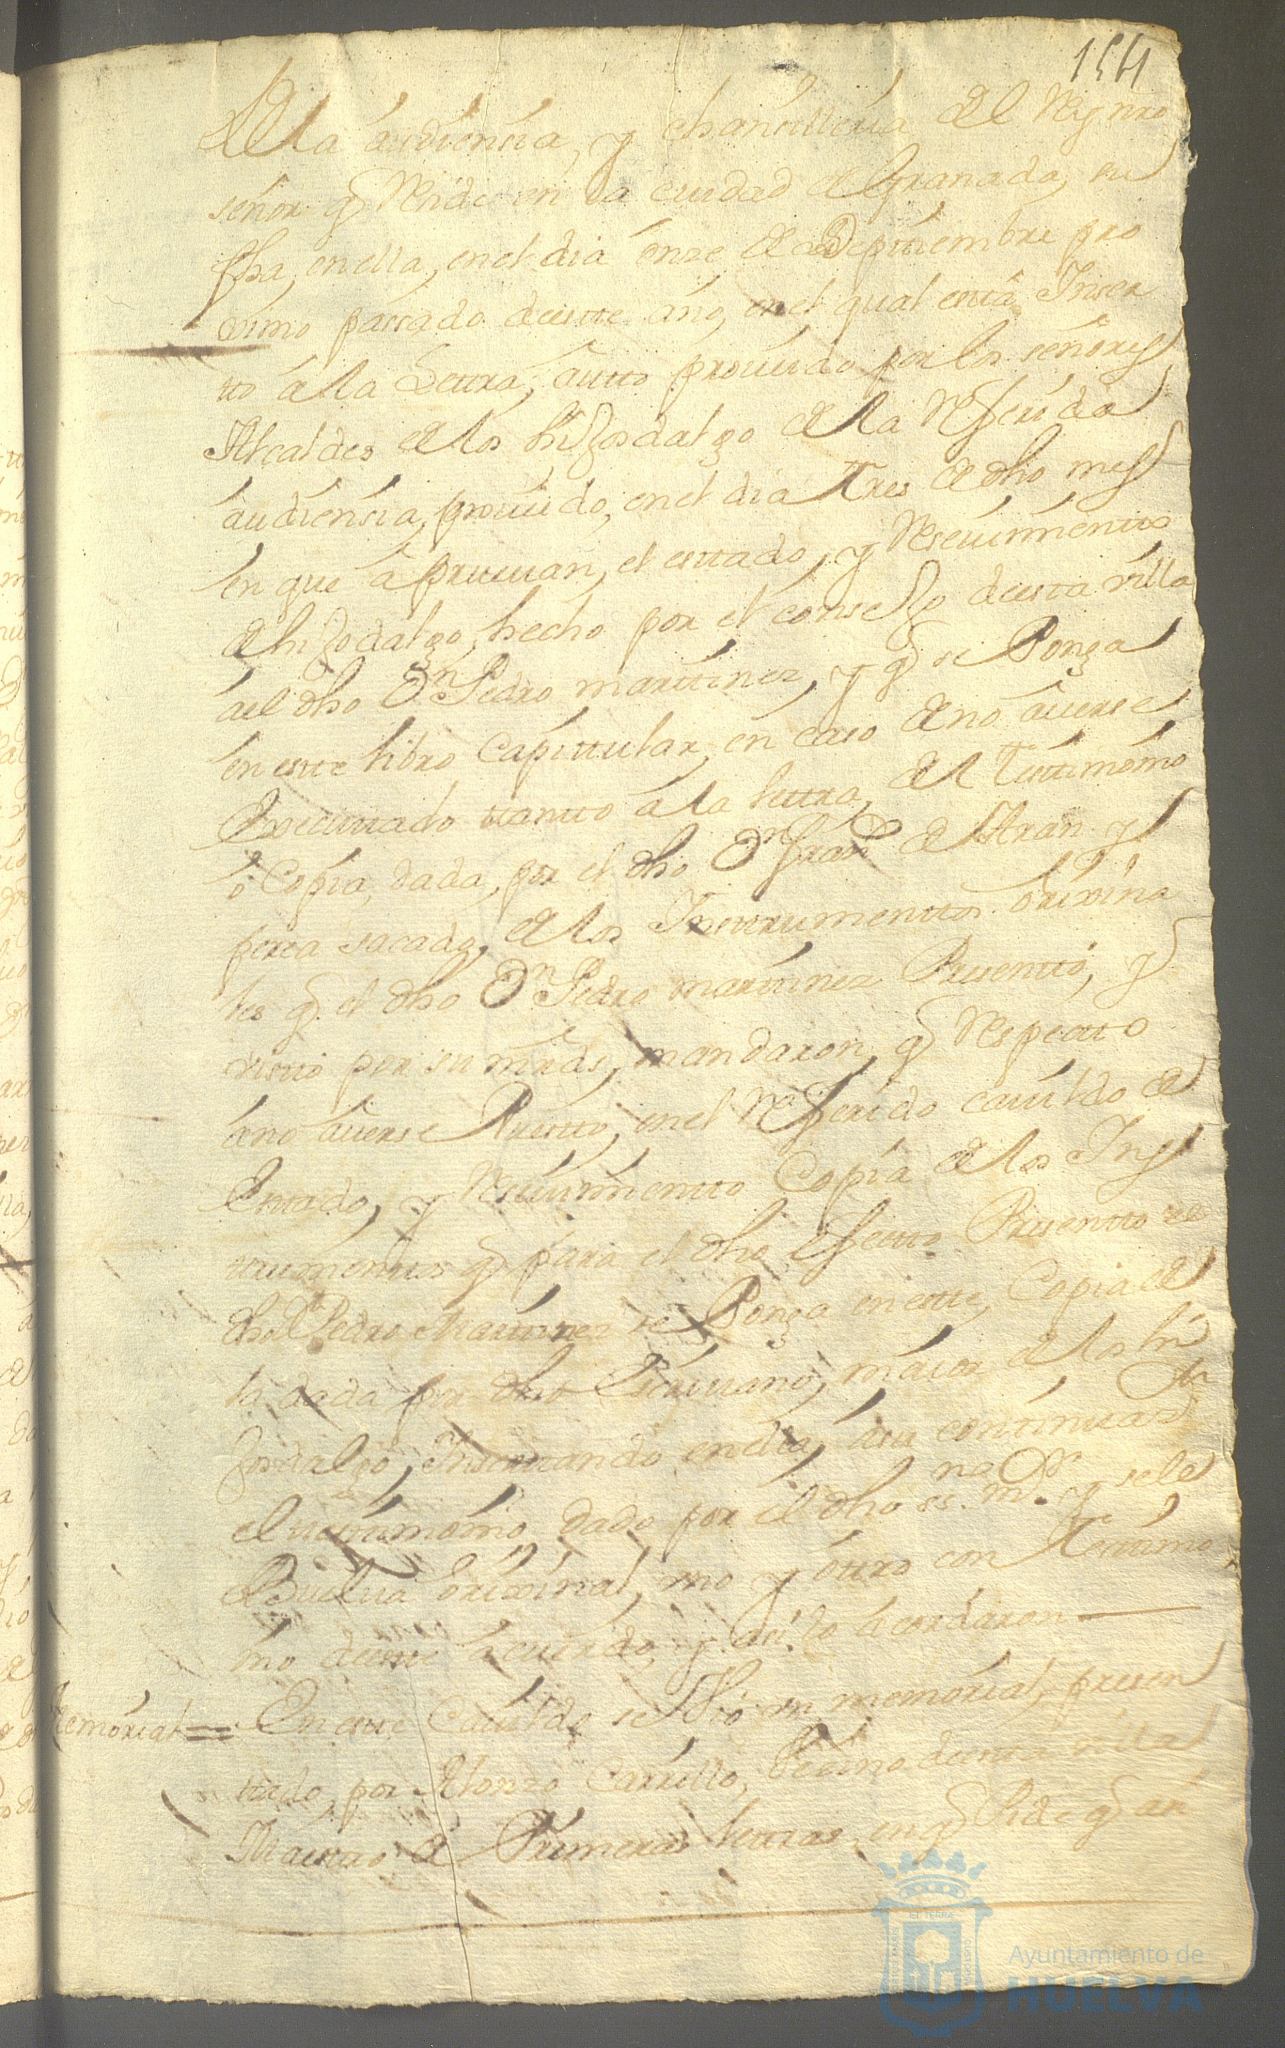 154
de la audiensia, y chansilleria del Rey nro
señor q Reside en la ciudad de Granada, su
fha, en ella, en el dia onze de Septtiembre pro
ximo passado de este año, en el qual estta Inser
tto a la Lettra, autto proueido por los señores
Alcaldes de los hijosdalgo de la Referida
audiensia, proueido, en el dia ttres de dho mes
en que aprueuan, el esttado, y Reseuimientto
de hijodalgo, hecho por el consejo de esta villa
a el dho Dn Pedro marttinez, y q se Ponga
en estte libro Capittular, en caso de no auerse
Executtado ttantto a la lettra, del Testtimonio
o Copia, dada, por el dho Dn Franco de Aran y
perea sacado, de los Insttrumenttos orixina
les q el dho Dn Pedro marttinez Presentto, y
vistto por su mrds, mandaron, q Respectto
a no auerse Puestto, en el Referido cauildo de
Esttado, y Reseuimientto Copia de los Ins
ttrumenttos q para el dho efectto Presentto el
dho Dn Pedro Marttinez se Ponga en estte, Copia de
la dada por dho Escriuano, maior de los hi
josdalgo, Inserttando en dia, a su continuasn
el testtimonio, dado por el dho essno mr y se le
Buelua orixinal, uno y ottro con Testtimo
nio de estte acuerdo, y asi lo acordaron
Memorial = En estte Cauildo se Vio un memorial, presen
ttado, por Alonzo Carrillo, Vecino de esta villa
Maestro de Primeras lettras en q Pide q an
Ayuntamiento de
HUELVA